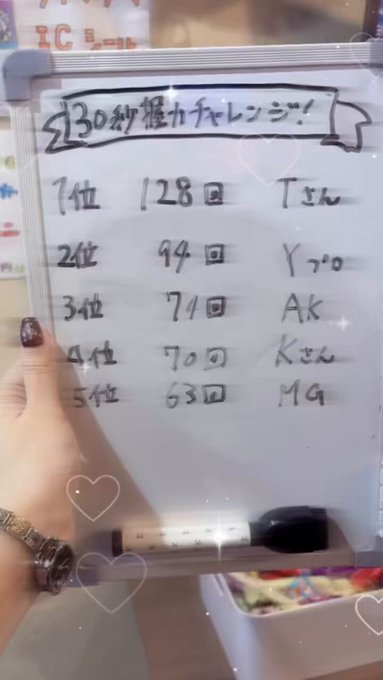 IC シール
30秒握力チャレンジ!
1位 128回 Tさん
2位 94回 Yプロ
3位 71回 AK
4位 70回 Kさん
5位 63回 MG